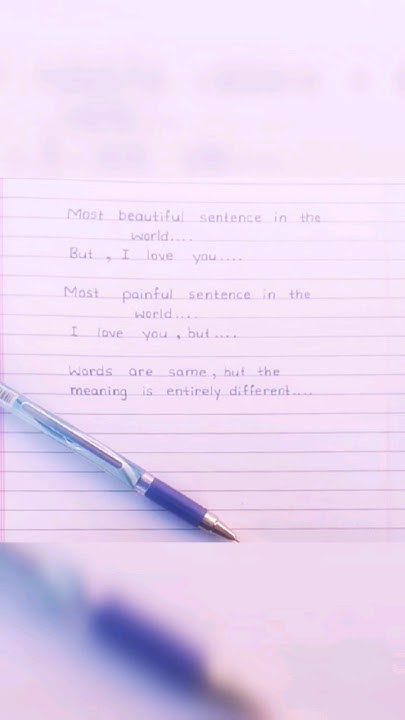 Most beautiful sentence in the
world....
But , I love you....
Most painful sentence in the
world....
I love you , but....
Words are same , but the
meaning is entirely different....